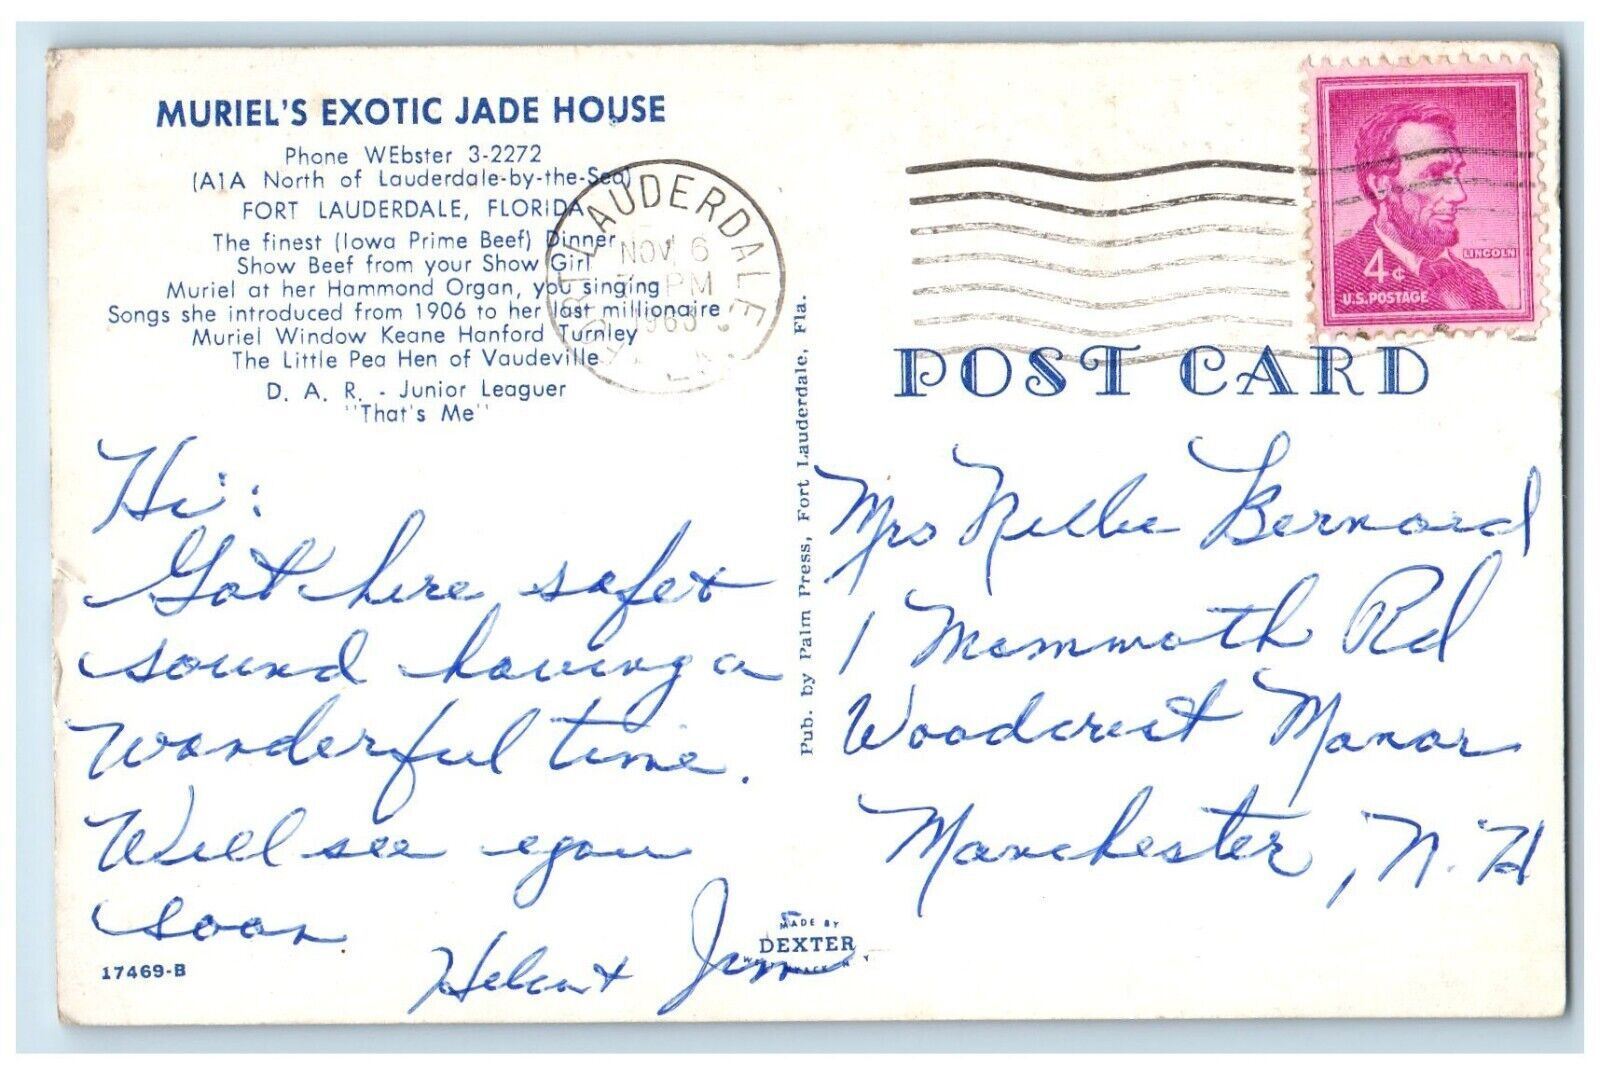 MURIEL'S EXOTIC JADE HOUSE
Phone WEbster 3-2272
(A1A North of Lauderdale-by-the-Sea)
FORT LAUDERDALE, FLORIDA
The finest (Iowa Prime Beef) Dinner
Show Beef from your Show Girl
Muriel at her Hammond Organ, you singing
Songs she introduced from 1906 to her last millionaire
Muriel Window Keane Hanford Turnley
The Little Pea Hen of Vaudeville
D. A. R. - Junior Leaguer
"That's Me"
Hi:
Got here safe +
sound having a
wonderful time.
Will see you
soon
Jim
17469-B
MADE BY
DEXTER
Pub. by Palm Press, Fort Lauderdale, Fla.
LAUDERDALE
NOV 6
PM
LINCOLN
4¢
U.S. POSTAGE
POST CARD
Mrs Nellie Bernard
1 Mammoth Rd
Woodcrest Manor
Manchester, N.H